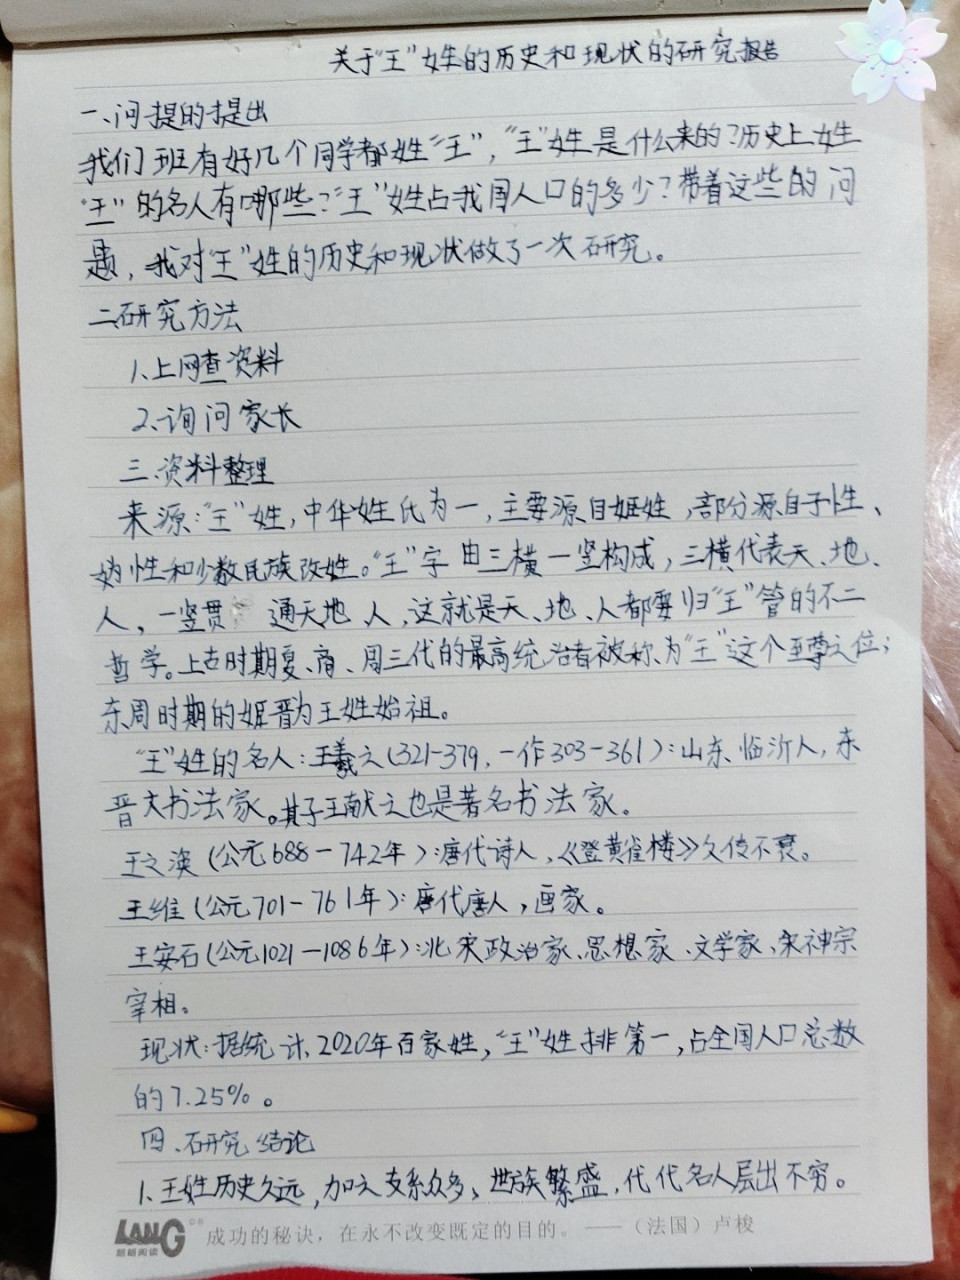 关于“王”姓的历史和现状的研究报告
一、问提的提出
我们班有好几个同学都姓“王”,“王”姓是什么来的?历史上姓
“王”的名人有哪些?“王”姓占我国人口的多少?带着这些的问
题,我对“王”姓的历史和现状做了一次研究。
二.研究方法
1、上网查资料
2、询问家长
三、资料整理
来源:“王”姓,中华姓氏为一,主要源自姬姓,部分源自子性、
妫性和少数民族改姓。“王”字由三横一竖构成,三横代表天、地、
人,一竖贯通天地人,这就是天、地、人都要归“王”管的不二
哲学。上古时期夏、商、周三代的最高统治者被称为“王”这个至尊之位;
东周时期的姬晋为王姓始祖。
“王”姓的名人:王羲之(321-379,一作303-361):山东临沂人,东
晋大书法家。其子王献之也是著名书法家。
王之涣(公元688-742年):唐代诗人,《登黄雀楼》久传不衰。
王维(公元701-761年):唐代唐人,画家。
王安石(公元1021-1086年):北宋政治家、思想家、文学家、宋神宗
宰相。
现状:据统计,2020年百家姓,“王”姓排第一,占全国人口总数
的7.25%。
四、研究结论
1、王姓历史久远,加之支系众多、世族繁盛,代代名人层出不穷。
LANG 朗朗阅读 成功的秘诀,在永不改变既定的目的。——(法国)卢梭